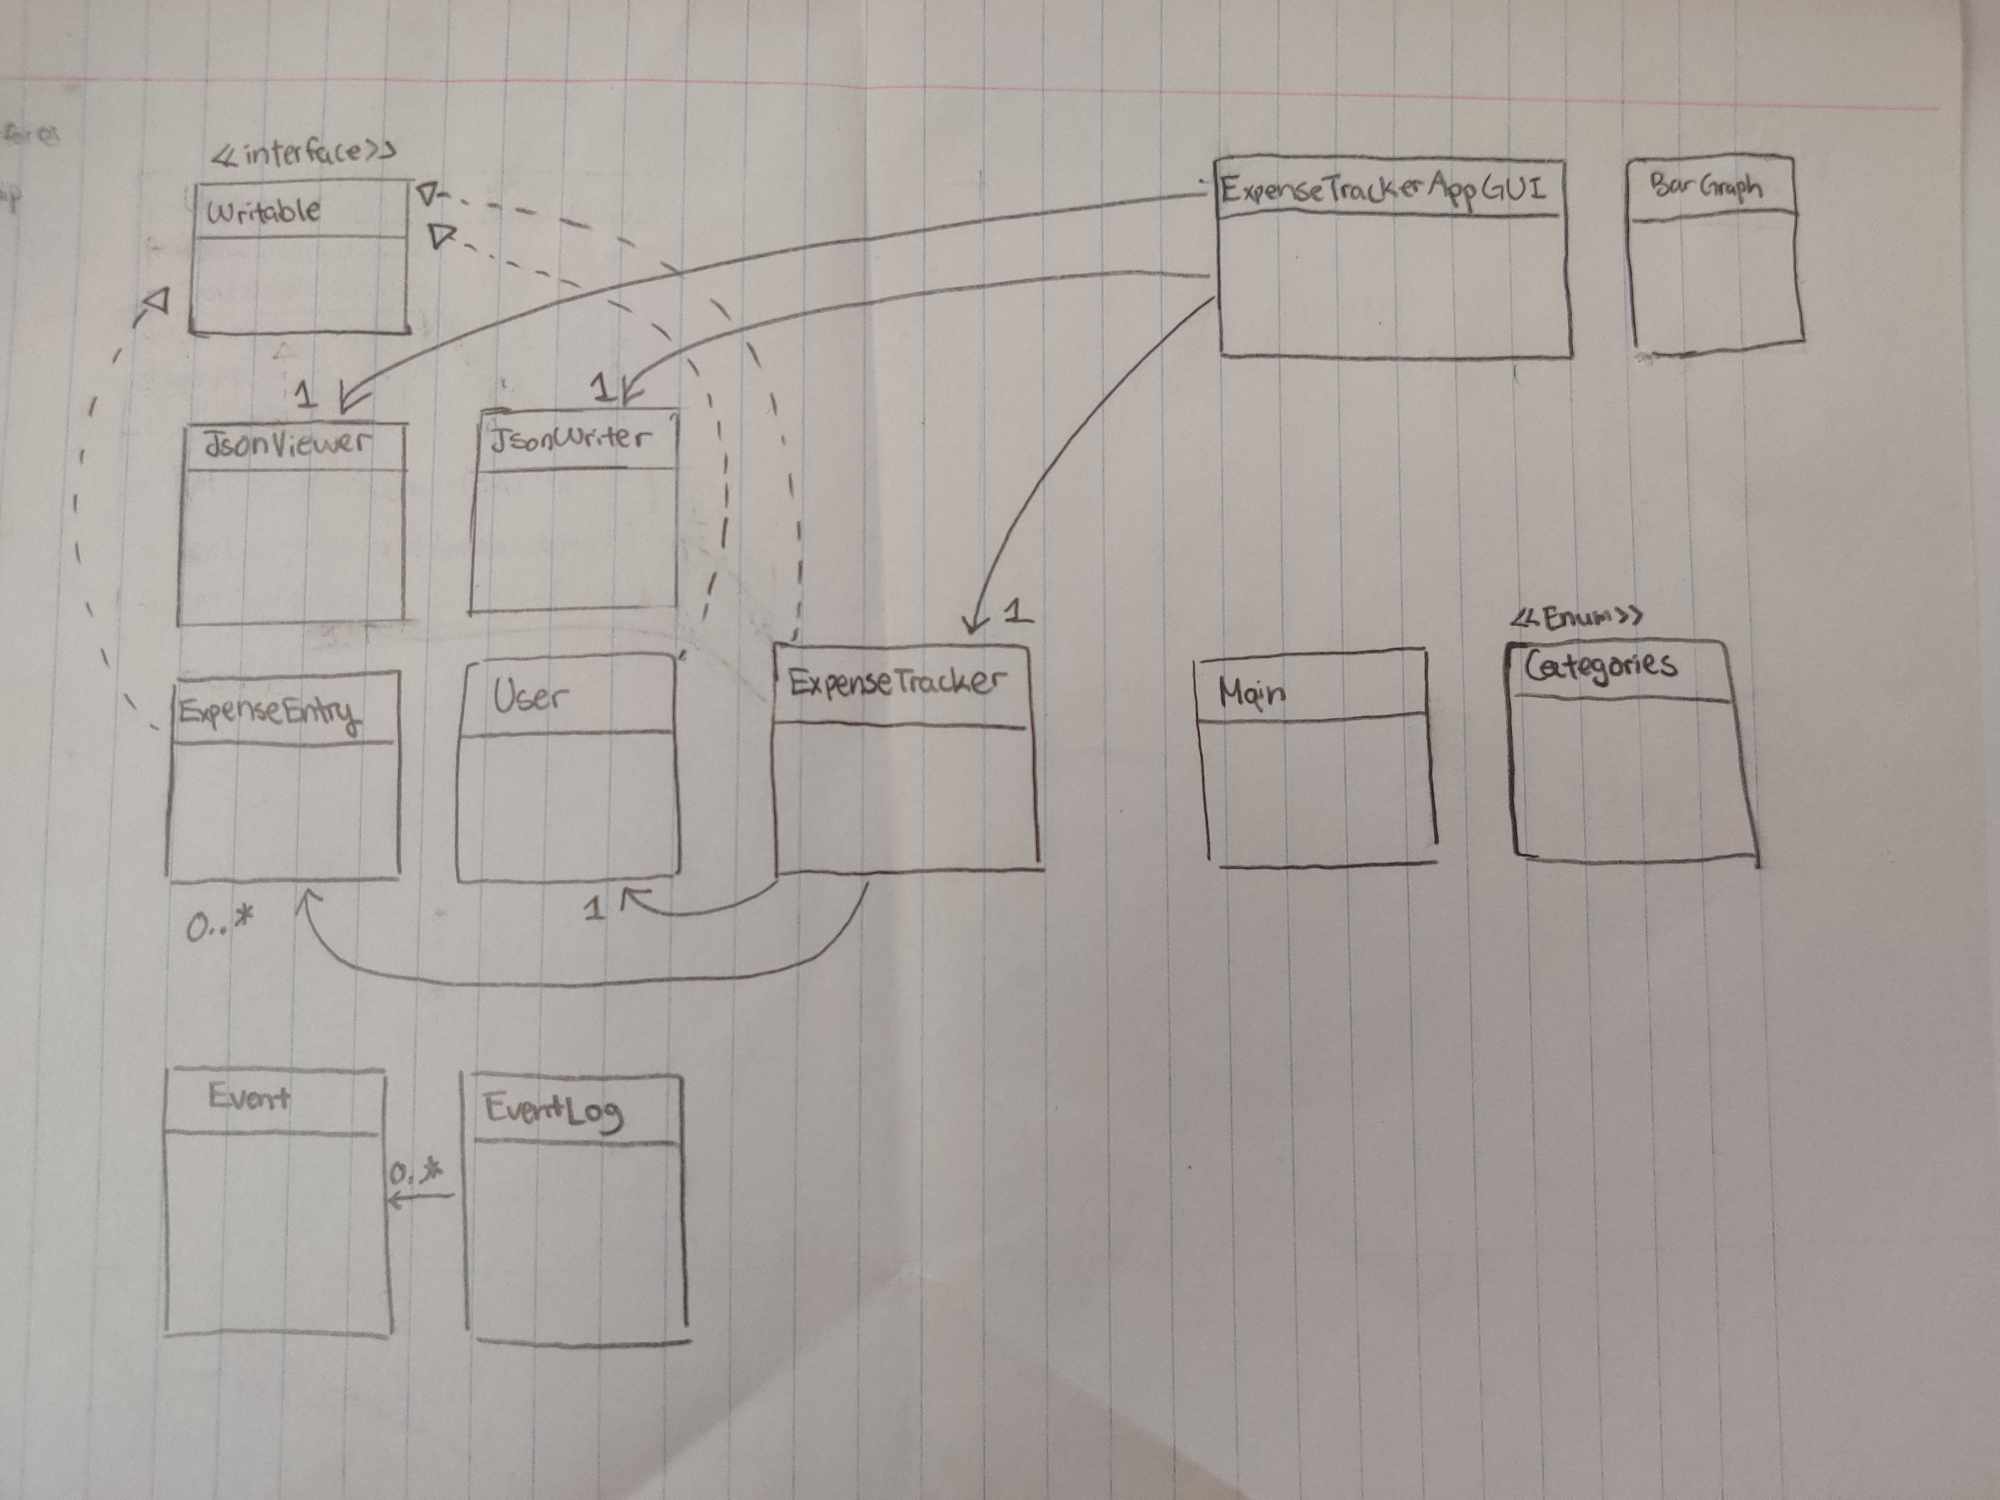 <<interface>>
Writable
ExpenseTrackerAppGUI
Bar Graph
1
1
JsonViewer
JsonWriter
1
<<Enum>>
ExpenseEntry
User
ExpenseTracker
Main
Categories
0..*
1
Event
EventLog
0..*